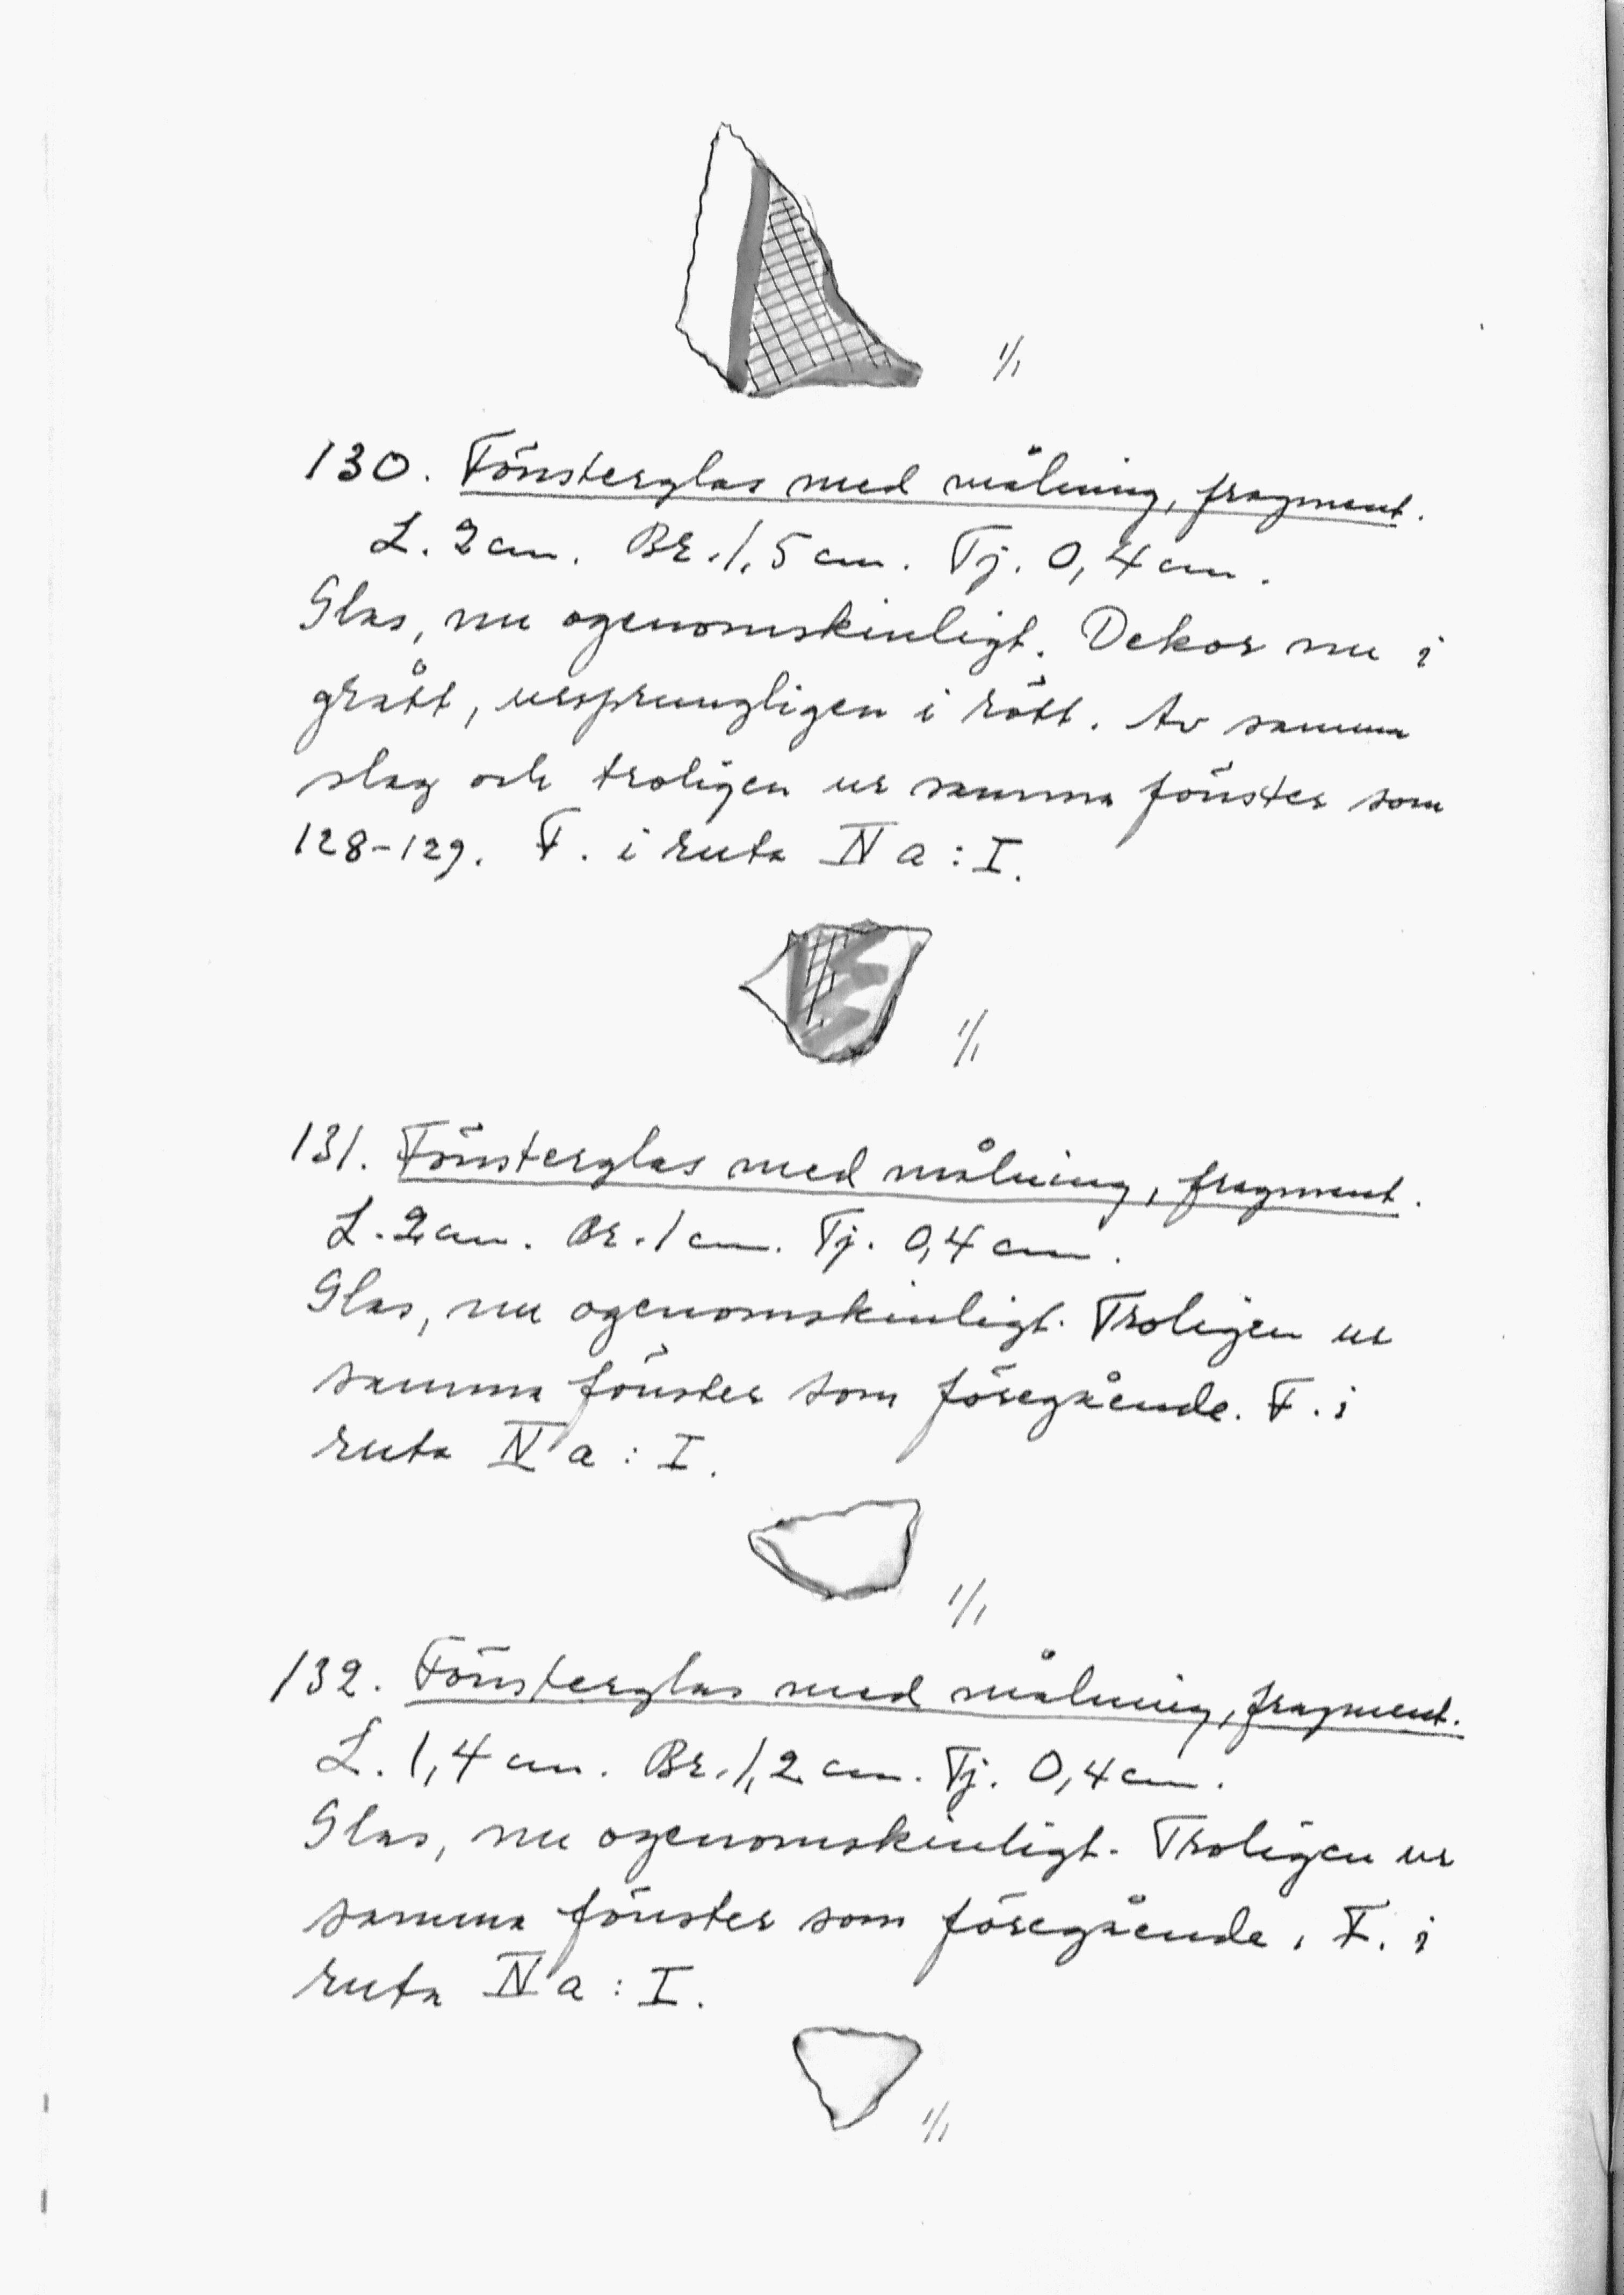 1/1
130. Fönsterglas med målning, fragment.
L. 2 cm. Br. 1,5 cm. Tj. 0,4 cm.
Glas, nu ogenomskinligt. Dekor nu i
grått, ursprungligen i rött. Av samma
slag och troligen ur samma fönster som
128-129. F. i ruta IV a : I.
1/1
131. Fönsterglas med målning, fragment.
L. 2 cm. Br. 1 cm. Tj. 0,4 cm.
Glas, nu ogenomskinligt. Troligen ur
samma fönster som föregående. F. i
ruta IV a : I.
1/1
132. Fönsterglas med målning, fragment.
L. 1,4 cm. Br. 1,2 cm. Tj. 0,4 cm.
Glas, nu ogenomskinligt. Troligen ur
samma fönster som föregående. F. i
ruta IV a : I.
1/1